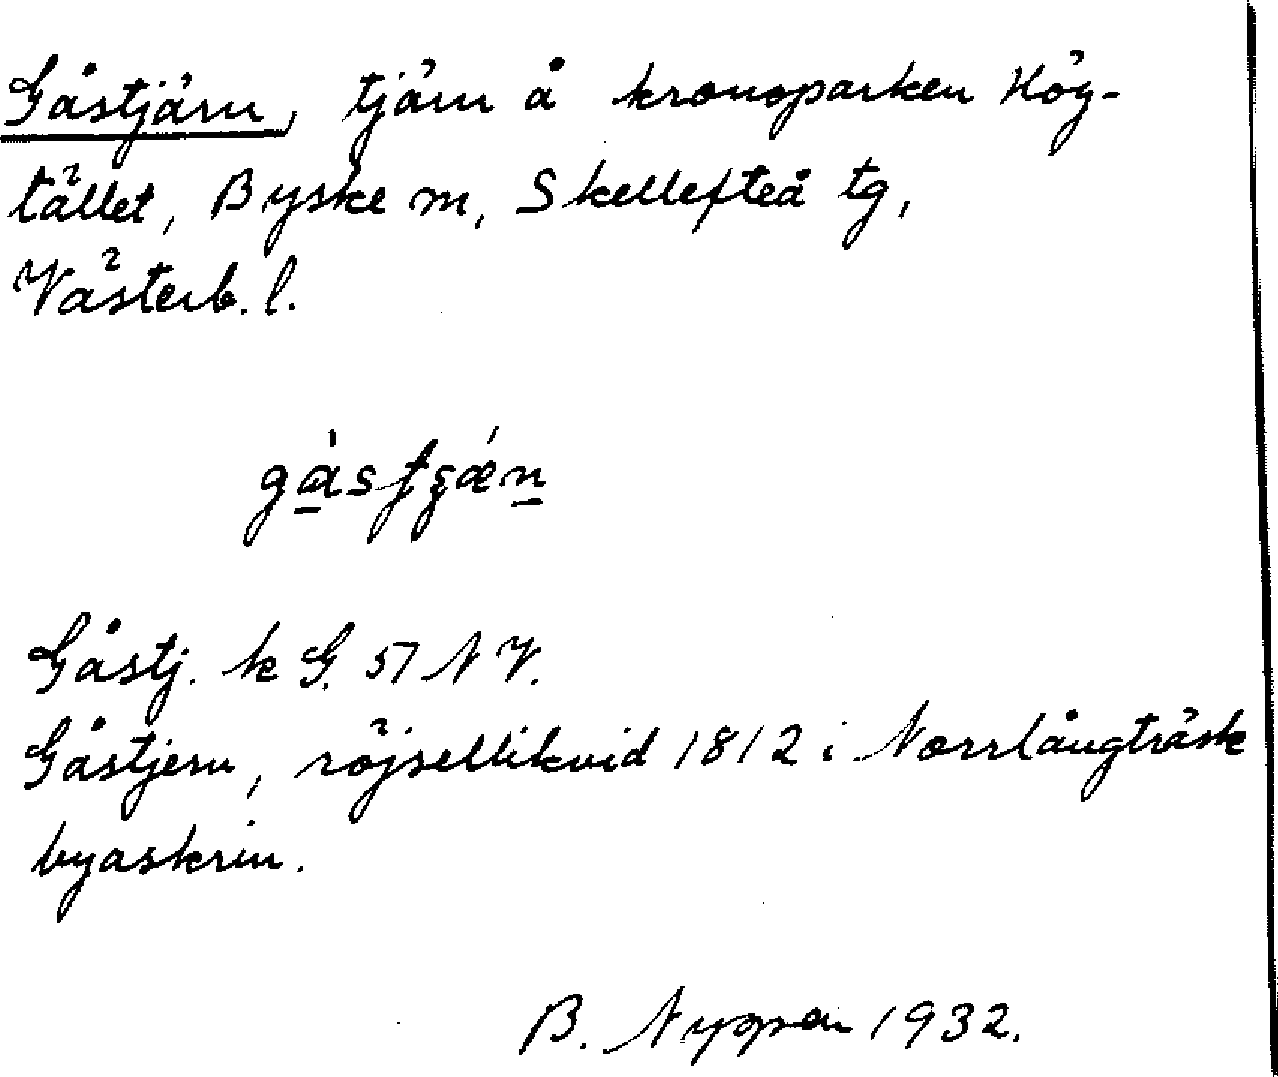 Gåstjärn, tjärn å kronoparken Hög-
tället, Byske m, Skellefteå tg,
Västerb. l.
Gåstj. k G. 51 N V.
Gåstjern, röjsellikvid 1812 i Norrlångträsk
byaskrin.
B. Nyman 1932.